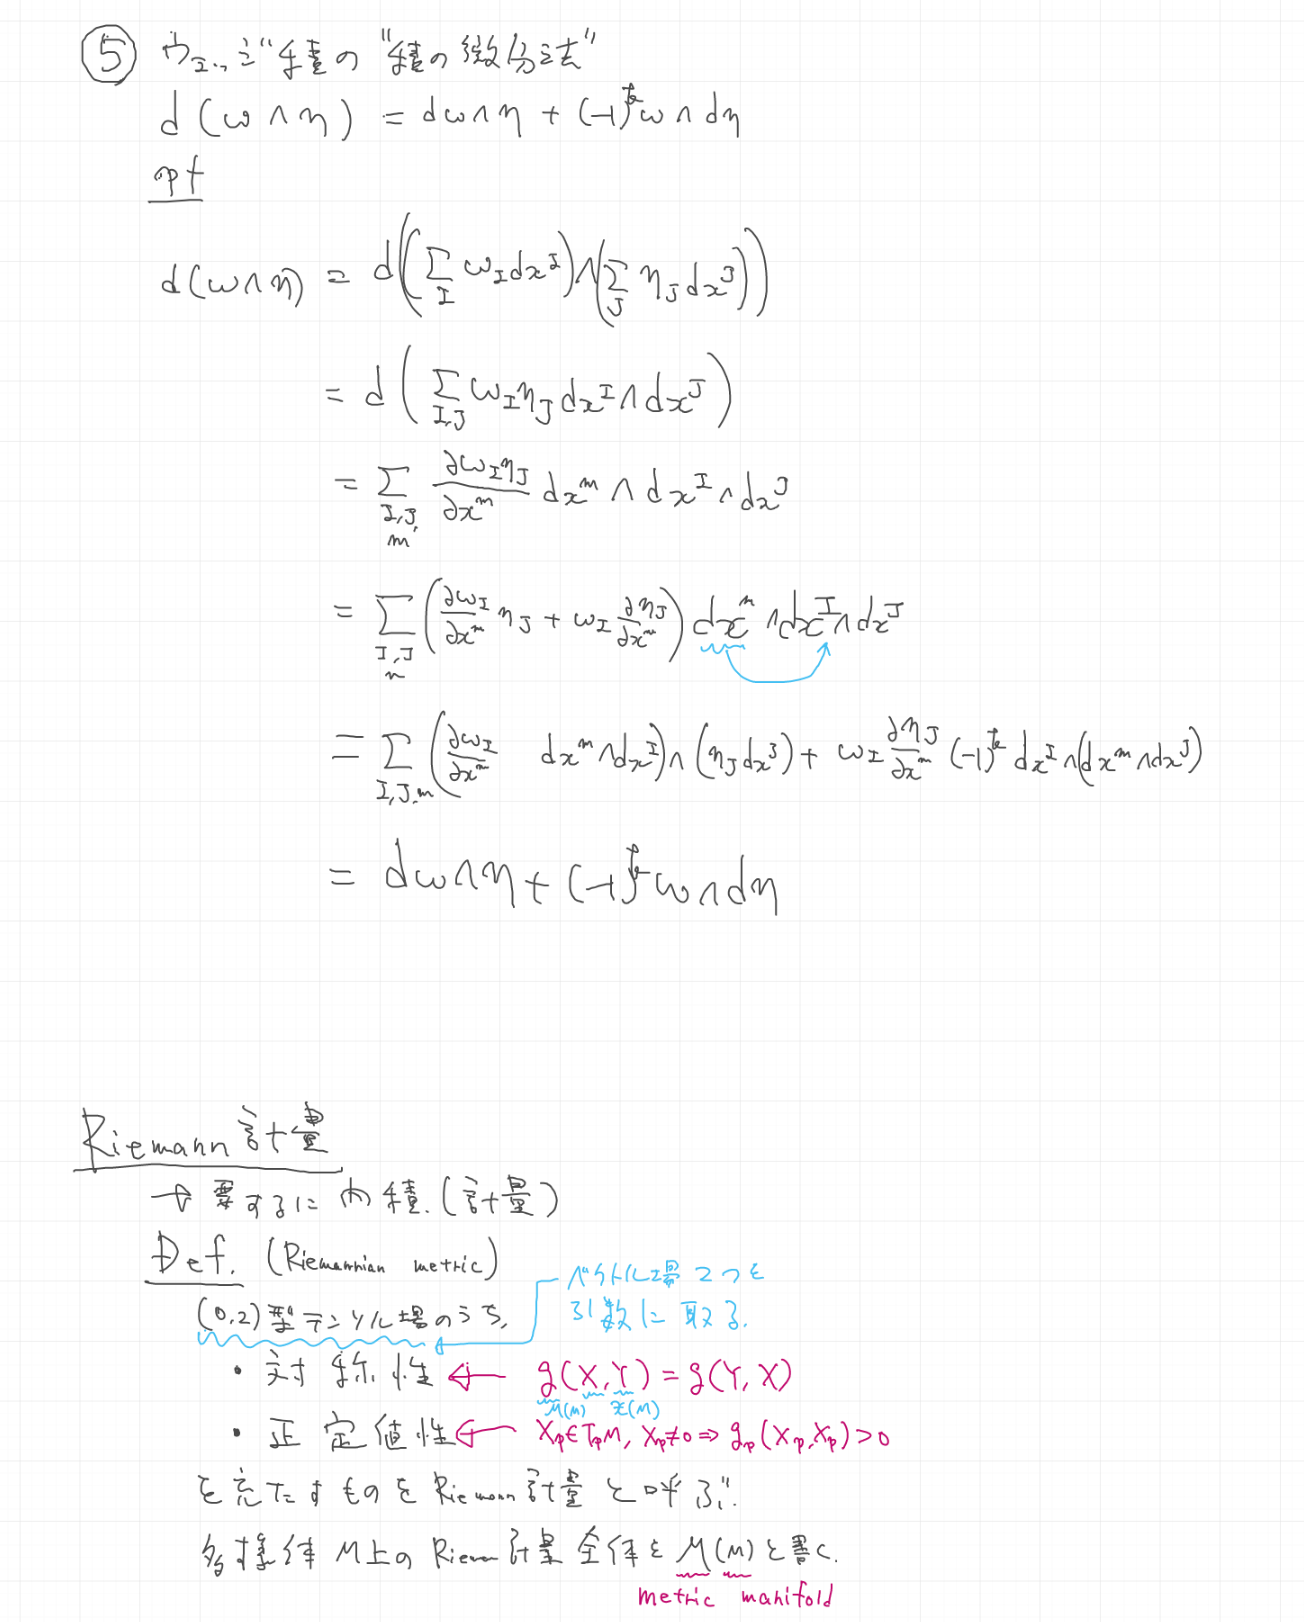 ⑤ ウェッジ積の"積の微分法"
d(ω∧η) = dω∧η + (-1)^k ω∧dη
pf
d(ω∧η) = d((Σ_I ω_I dx^I)∧(Σ_J η_J dx^J))
= d(Σ_{I,J} ω_I η_J dx^I∧dx^J)
= Σ_{I,J,m} ∂ω_Iη_J/∂x^m dx^m∧dx^I∧dx^J
= Σ_{I,J,m} (∂ω_I/∂x^m η_J + ω_I ∂η_J/∂x^m) dx^m∧dx^I∧dx^J
= Σ_{I,J,m} (∂ω_I/∂x^m dx^m∧dx^I)∧(η_J dx^J) + ω_I ∂η_J/∂x^m (-1)^k dx^I∧(dx^m∧dx^J)
= dω∧η + (-1)^k ω∧dη
Riemann計量
→ 要するに内積.(計量)
Def. (Riemannian metric)
ベクトル場2つを
引数に取る.
(0,2)型テンソル場のうち,
・対称性 ← g(X,Y) = g(Y,X)
M(M) X(M)
・正定値性 ← X_p∈T_pM, X_p≠0 ⇒ g_p(X_p,X_p)>0
を充たすものをRiemann計量と呼ぶ.
多様体M上のRieman計量全体をM(M)と書く.
metric manifold